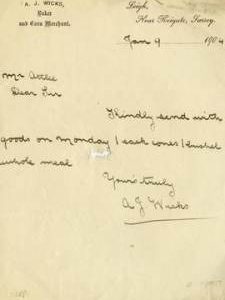 A. J. WICKS,
Baker
and Corn Merchant.
Leigh,
Near Reigate, Surrey.
Jan 9 1904
Mr Attlee
Dear Sir
Kindly send with
goods on Monday 1 sack cones 1 bushel
whole meal
Yours truly
A J Wicks